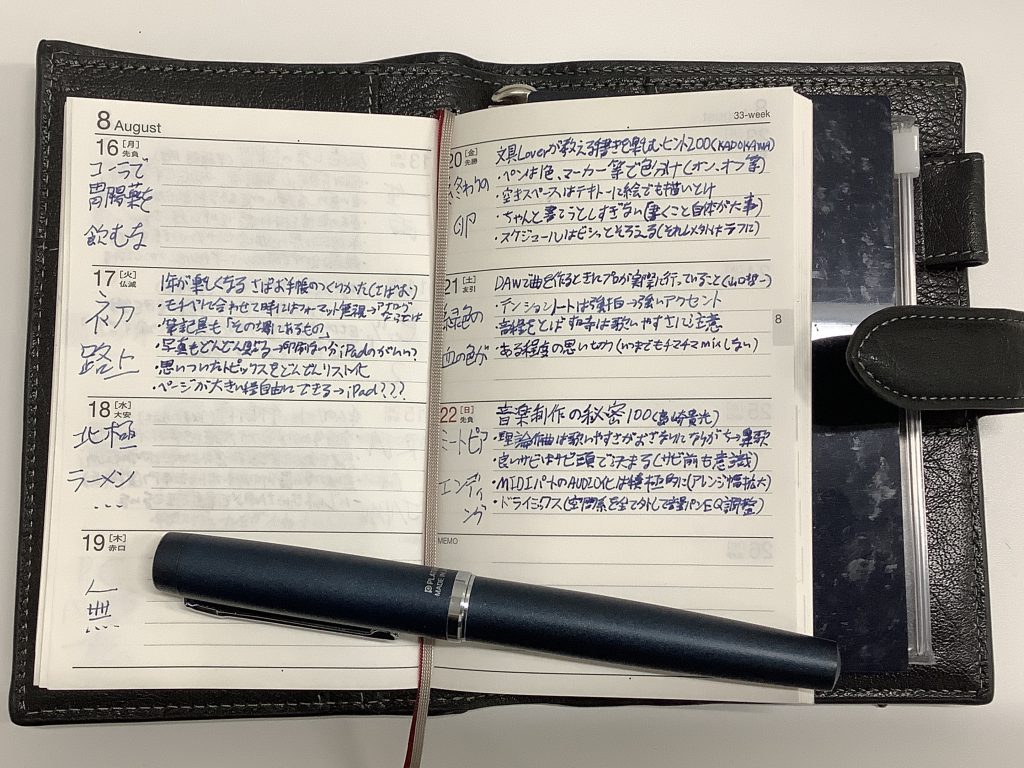 8 August
16 [月]
先負
コーラで
胃腸薬を
飲むな
17 [火]
仏滅
1年が楽しくなるさぼお手帳のつくりかた(さぼお)
・モチベに合わせて時にはフォーマット無視→アナログ
ならでは
・筆記具も「その場にあるもの」
・写真もどんどん貼る→印刷ないが iPadのがいい?
・思いついたトピックスをどんどんリスト化
・ページが大きい程自由にできる→iPad???
ネカフェ
路上
18 [水]
大安
北極
ラーメン
...
19 [木]
赤口
無
...
33-week
20 [金]
先勝
終わりの
卵
文具Loverが教える書きを楽しむヒント200(KADOKAWA)
・ペンは1色、マーカー等で色分け(オン、オフ等)
・空きスペースはテキトーに絵でも描いとけ
・ちゃんと書こうとしすぎない(書くこと自体が大事)
・スケジュールはビシッとそろえる(それ以外はラフに)
21 [土]
友引
緑色の
血の色が
DAWで曲を作るときにプロが実際に行っていること(山口哲一)
・テンションノートは強拍→強いアクセント
・音程をとばす時は歌いやすさに注意
・ある程度の思い切り(いつまでもチマチマmixしない)
8
22 [日]
先負
ミートピア
エンディ
ング
音楽制作の秘密100(島崎貴光)
・理論作曲は歌いやすさがおざなりになりがち→鼻歌
・良いサビはサビ頭で決まる(サビ前も意識)
・MIDIパートのAUDIO化は積極的に(アレンジ幅拡大)
・ドライミックス(空間系を全て外して音量パンEQ調整)
MEMO
MADE IN